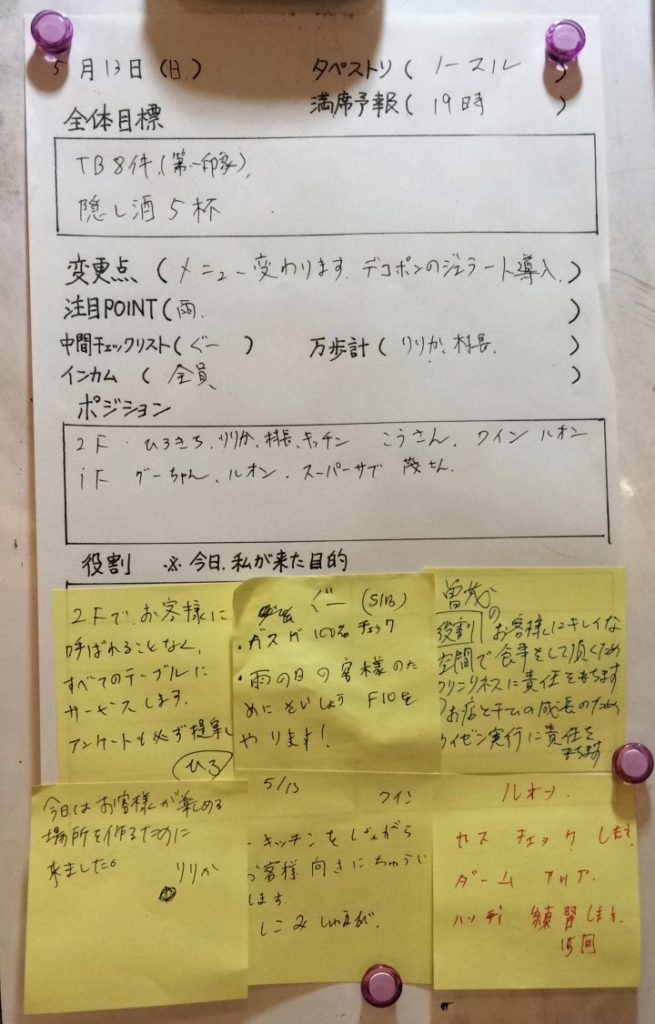 5月13日(日)
タペストリ( ノースル )
満席予報( 19時 )
全体目標
TB8件.(第一印象).
隠し酒5杯
変更点 (メニュー変わります. デコポンのジェラート導入.)
注目POINT(雨. )
中間チェックリスト( ぐー )
万歩計( りりか、村長. )
インカム ( 全員 )
ポジション
2F ひろきち、りりか、村長、キッチン こうさん、ワイン ルオン
1F グーちゃん、ルオン、スーパーサブ 茂さん.
役割 ※今日、私が来た目的
2Fで、お客様に
呼ばれることなく、
すべてのテーブルに
サービスします.
アンケートも必ず提案し
ひろ
ぐー (5/13)
・ガスが100% チェック
・雨の日の客様のた
めに F10を
やります!
の
役割 お客様にキレイな
空間で食事をして頂くため
クリンリネスに責任を持ちます
お店とチームの成長のため
カイゼン実行に責任を
持ちます
今日はお客様が楽しめる
場所を作るために
来ました。
りりか
5/13 ワイン
キッチンをしながら
お客様向きにちゅうい
します.
しこみ
ルオン.
セス チェック します.
ダーム アリア.
ハッチ 練習します.
15回